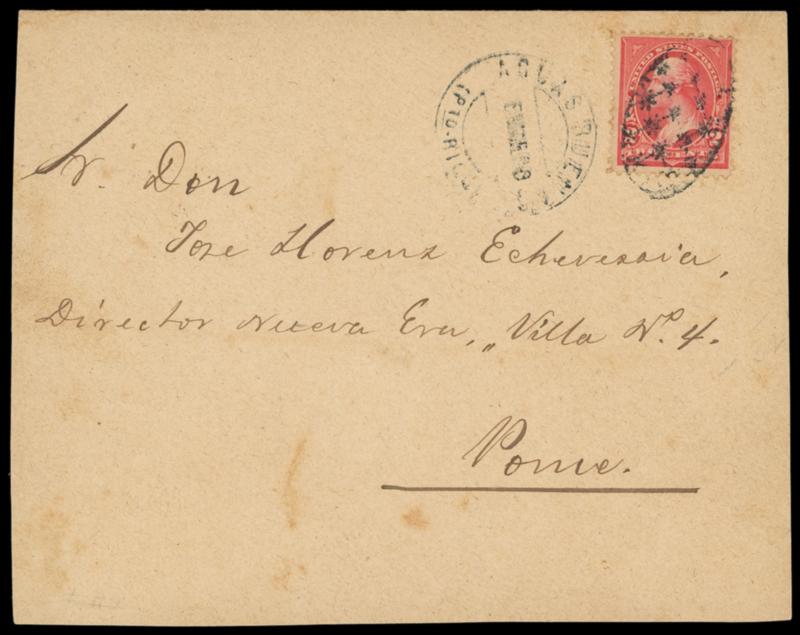 AGUAS BUENAS
(PTO-RICO)
UNITED STATES POSTAGE
TWO CENTS
Sr. Don
Jose Llorens Echeverria,
Director Nueva Era, „Villa Nº. 4.
Ponce.